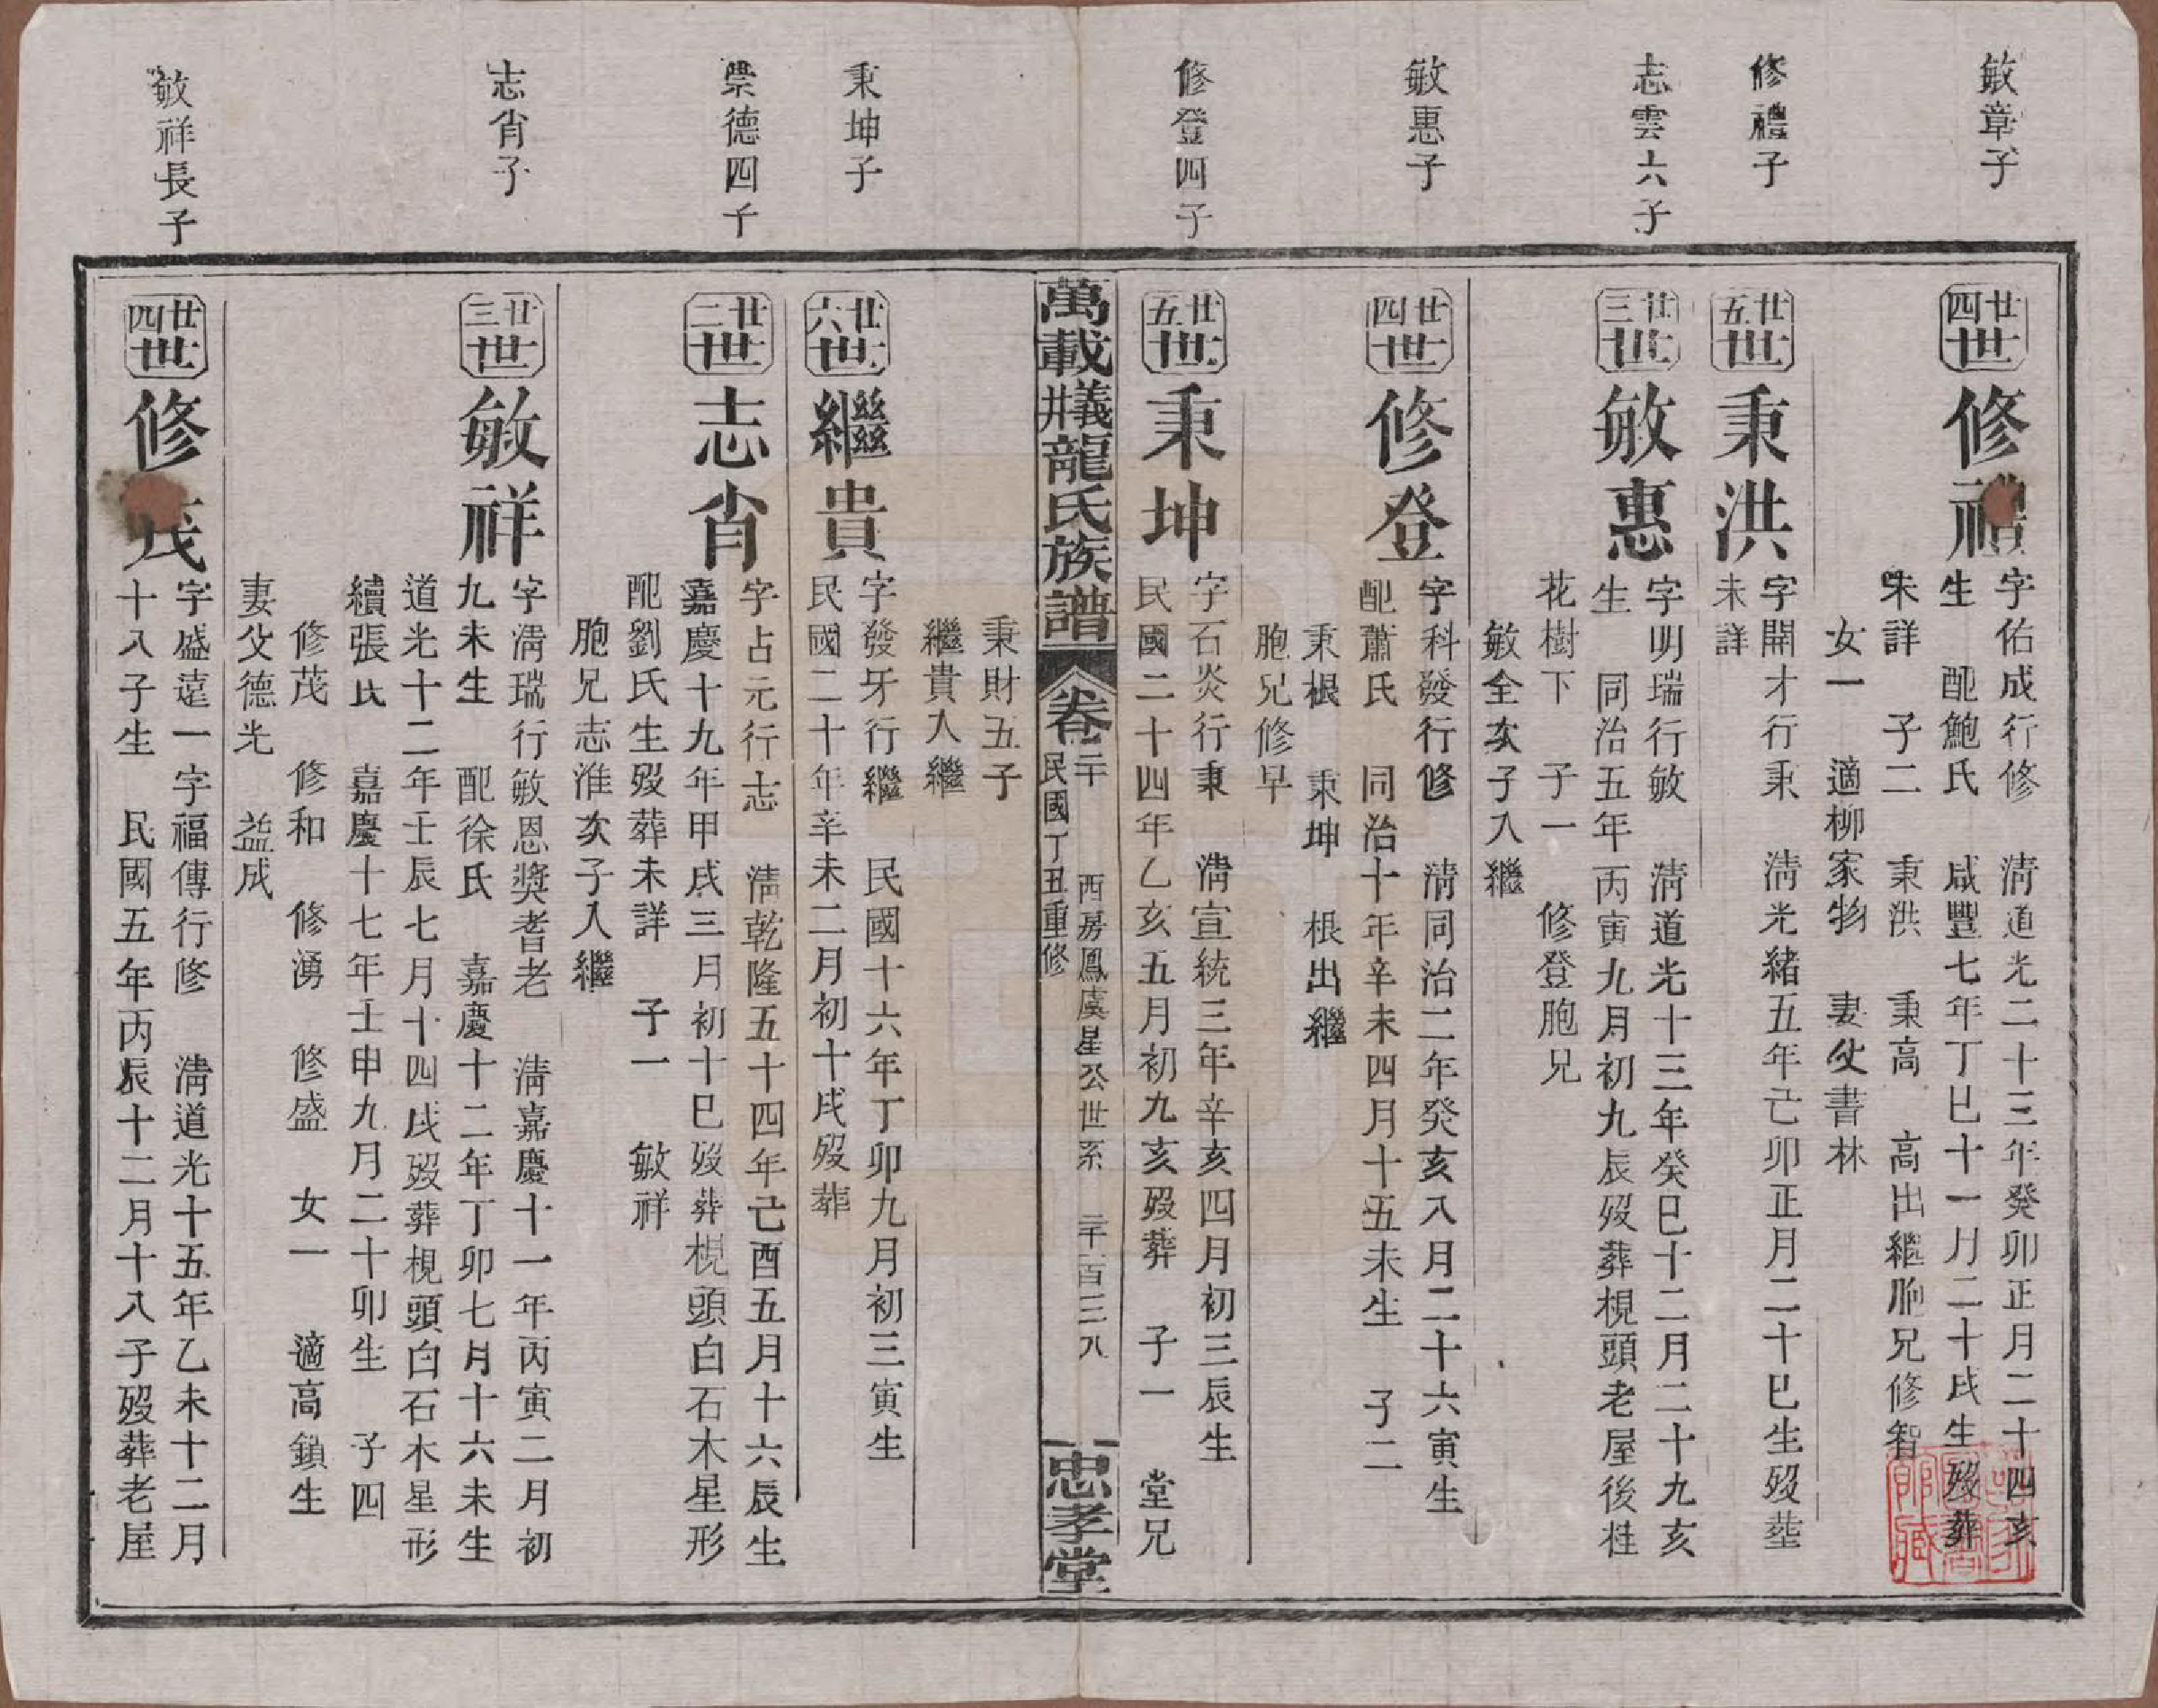 敏章子
廿四世 修禮
字佑成行修 清道光二十三年癸卯正月二十四亥
生 配鮑氏 咸豐七年丁巳十一月二十戌生歿葬
未詳 子二 秉洪 秉高 高出繼胞兄修智
女一 適柳家物 妻父書林
修禮子
廿五世 秉洪
字開才行秉 清光緒五年己卯正月二十巳生歿塟
未詳
志雲六子
廿三世 敏惠
字明瑞行敏 清道光十三年癸巳十二月二十九亥
生 同治五年丙寅九月初九辰歿葬梘頭老屋後桂
花樹下 子一 修登胞兄
敏全次子入繼
敏惠子
廿四世 修登
字科發行修 清同治二年癸亥八月二十六寅生
配蕭氏 同治十年辛未四月十五未生 子二
秉根 秉坤 根出繼
胞兄修早
修登四子
廿五世 秉坤
字石炎行秉 清宣統三年辛亥四月初三辰生
民國二十四年乙亥五月初九亥歿葬 子一 堂兄
秉財五子
繼貴入繼
萬載井義龍氏族譜 卷二十 民國丁丑重修 西房鳳虞星公世系 二千一百三八 忠孝堂
秉坤子
廿六世 繼貴
字發牙行繼 民國十六年丁卯九月初三寅生
民國二十年辛未二月初十戌歿葬
崇德四子
廿二世 志肖
字占元行志 清乾隆五十四年己酉五月十六辰生
嘉慶十九年甲戌三月初十巳歿葬梘頭白石木星形
配劉氏生歿葬未詳 子一 敏祥
胞兄志淮次子入繼
志肖子
廿三世 敏祥
字清瑞行敏恩獎耆老 清嘉慶十一年丙寅二月初
九未生 配徐氏 嘉慶十二年丁卯七月十六未生
道光十二年壬辰七月十四戌歿葬梘頭白石木星形
續張氏 嘉慶十七年壬申九月二十卯生 子四
修茂 修和 修湧 修盛 女一 適高鎖生
妻父德光 益成
敏祥長子
廿四世 修茂
字盛遠一字福傳行修 清道光十五年乙未十二月
十八子生 民國五年丙辰十二月十八子歿葬老屋